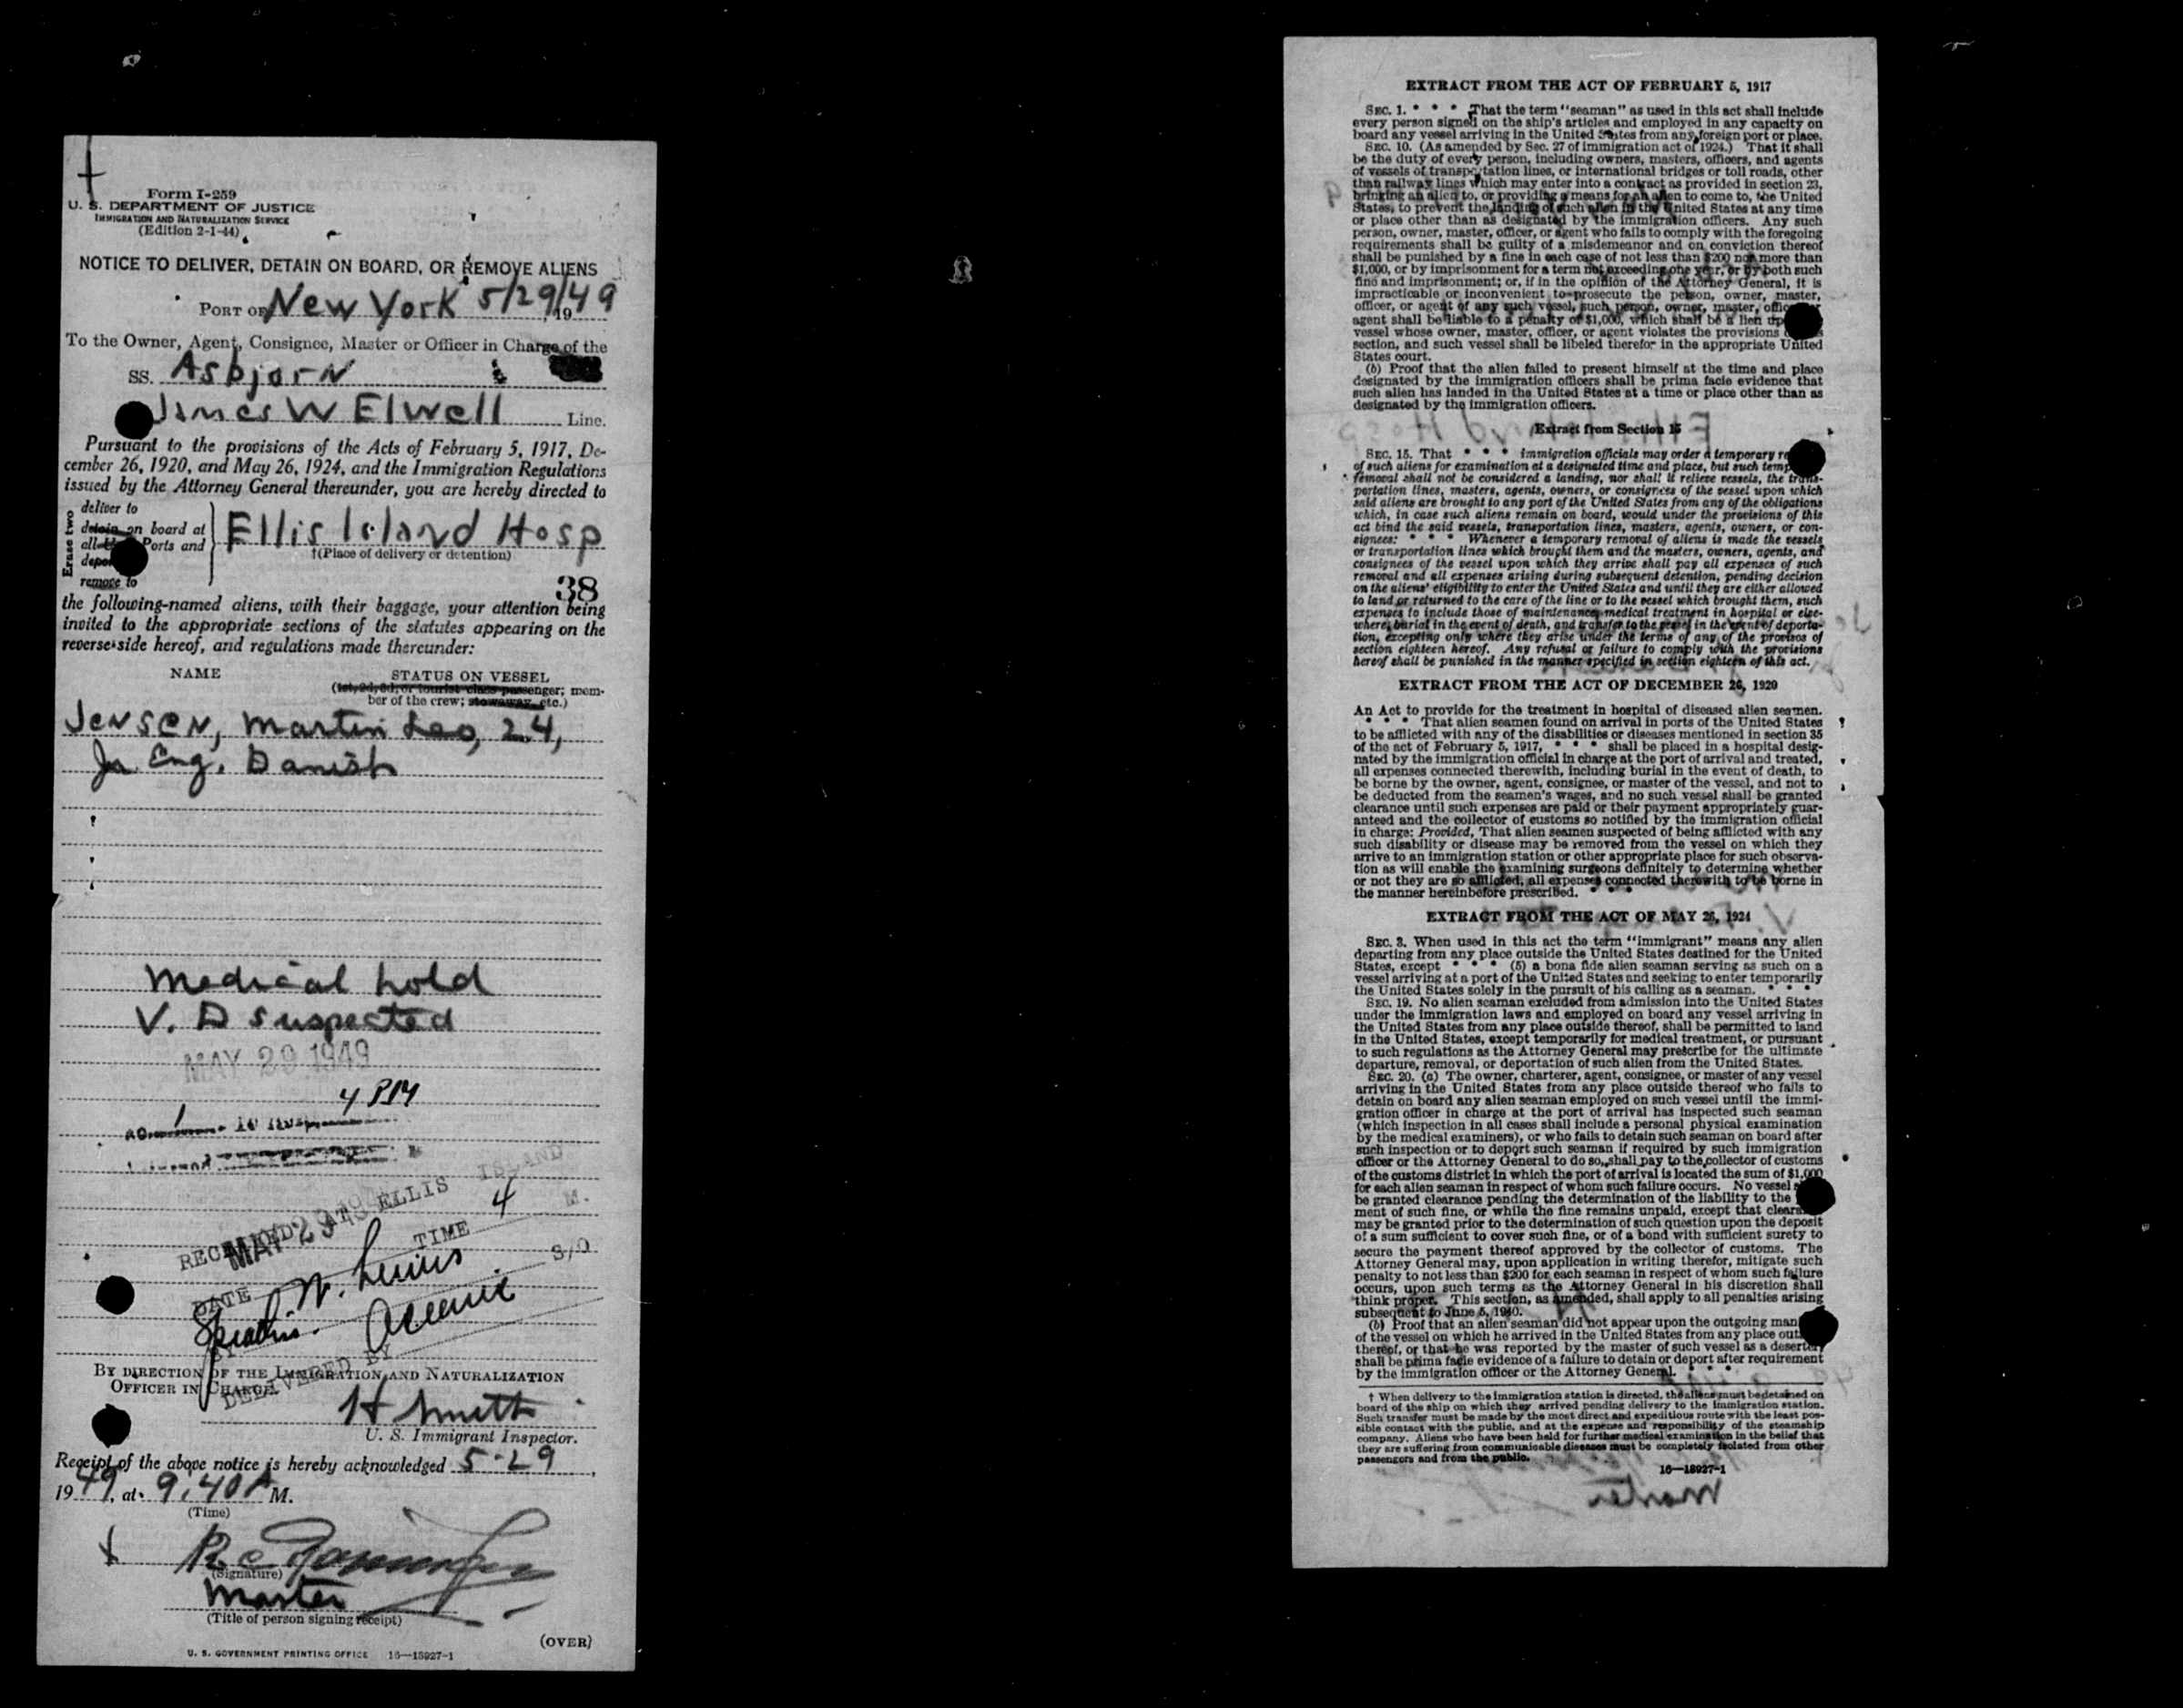 Form I-259
U. S. DEPARTMENT OF JUSTICE
IMMIGRATION AND NATURALIZATION SERVICE
(Edition 2-1-44)
NOTICE TO DELIVER, DETAIN ON BOARD, OR REMOVE ALIENS
PORT OF New York 5/29/49, 19
To the Owner, Agent, Consignee, Master or Officer in Charge of the
SS. Asbjorn
James W Elwell Line.
Pursuant to the provisions of the Acts of February 5, 1917, De-
cember 26, 1920, and May 26, 1924, and the Immigration Regulations
issued by the Attorney General thereunder, you are hereby directed to
Erase two
deliver to
detain on board at
all Ports and
remove to
Ellis Island Hosp
†(Place of delivery or detention)
38
the following-named aliens, with their baggage, your attention being
invited to the appropriate sections of the statutes appearing on the
reverse side hereof, and regulations made thereunder:
NAME STATUS ON VESSEL
(1st, 2d, 3d, or tourist class passenger; mem-
ber of the crew; stowaway, etc.)
Jensen, Martin Leo, 24,
Jr Eng. Danish
Medical hold
V. D suspected
MAY 29 1949
4 PM
RECEIVED AT ELLIS ISLAND
MAY 29 1949
DATE TIME 4 M.
S/O
DELIVERED BY
BY DIRECTION OF THE IMMIGRATION AND NATURALIZATION
OFFICER IN CHARGE.
H Smith
U. S. Immigrant Inspector.
Receipt of the above notice is hereby acknowledged 5-29,
1949, at 9:40 A M.
(Time)
(Signature)
Master
(Title of person signing receipt)
(OVER)
U. S. GOVERNMENT PRINTING OFFICE 16—18927-1
EXTRACT FROM THE ACT OF FEBRUARY 5, 1917
SEC. 1. * * * That the term "seaman" as used in this act shall include
every person signed on the ship's articles and employed in any capacity on
board any vessel arriving in the United States from any foreign port or place.
SEC. 10. (As amended by Sec. 27 of immigration act of 1924.) That it shall
be the duty of every person, including owners, masters, officers, and agents
of vessels of transportation lines, or international bridges or toll roads, other
than railway lines which may enter into a contract as provided in section 23,
bringing an alien to, or providing a means for an alien to come to, the United
States, to prevent the landing of such alien in the United States at any time
or place other than as designated by the immigration officers. Any such
person, owner, master, officer, or agent who fails to comply with the foregoing
requirements shall be guilty of a misdemeanor and on conviction thereof
shall be punished by a fine in each case of not less than $200 nor more than
$1,000, or by imprisonment for a term not exceeding one year, or by both such
fine and imprisonment; or, if in the opinion of the Attorney General, it is
impracticable or inconvenient to prosecute the person, owner, master,
officer, or agent of any such vessel, such person, owner, master, officer
agent shall be liable to a penalty of $1,000, which shall be a lien upon
vessel whose owner, master, officer, or agent violates the provisions
section, and such vessel shall be libeled therefor in the appropriate United
States court.
(b) Proof that the alien failed to present himself at the time and place
designated by the immigration officers shall be prima facie evidence that
such alien has landed in the United States at a time or place other than as
designated by the immigration officers.
Extract from Section 15
SEC. 15. That * * * immigration officials may order a temporary
of such aliens for examination at a designated time and place, but such
removal shall not be considered a landing, nor shall it relieve vessels, the trans-
portation lines, masters, agents, owners, or consignees of the vessel upon which
said aliens are brought to any port of the United States from any of the obligations
which, in case such aliens remain on board, would under the provisions of this
act bind the said vessels, transportation lines, masters, agents, owners, or con-
signees: * * * Whenever a temporary removal of aliens is made the vessels
or transportation lines which brought them and the masters, owners, agents, and
consignees of the vessel upon which they arrive shall pay all expenses of such
removal and all expenses arising during subsequent detention, pending decision
on the aliens' eligibility to enter the United States and until they are either allowed
to land or returned to the care of the line or to the vessel which brought them, such
expenses to include those of maintenance, medical treatment in hospital or else-
where, burial in the event of death, and transfer to the vessel in the event of deporta-
tion, excepting only where they arise under the terms of any of the provisos of
section eighteen hereof. Any refusal or failure to comply with the provisions
hereof shall be punished in the manner specified in section eighteen of this act.
EXTRACT FROM THE ACT OF DECEMBER 26, 1920
An Act to provide for the treatment in hospital of diseased alien seamen.
* * * That alien seamen found on arrival in ports of the United States
to be afflicted with any of the disabilities or diseases mentioned in section 35
of the act of February 5, 1917, * * * shall be placed in a hospital desig-
nated by the immigration official in charge at the port of arrival and treated,
all expenses connected therewith, including burial in the event of death, to
be borne by the owner, agent, consignee, or master of the vessel, and not to
be deducted from the seamen's wages, and no such vessel shall be granted
clearance until such expenses are paid or their payment appropriately guar-
anteed and the collector of customs so notified by the immigration official
in charge: Provided, That alien seamen suspected of being afflicted with any
such disability or disease may be removed from the vessel on which they
arrive to an immigration station or other appropriate place for such observa-
tion as will enable the examining surgeons definitely to determine whether
or not they are so afflicted, all expenses connected therewith to be borne in
the manner hereinbefore prescribed. * * *
EXTRACT FROM THE ACT OF MAY 26, 1924
SEC. 3. When used in this act the term "immigrant" means any alien
departing from any place outside the United States destined for the United
States, except * * * (5) a bona fide alien seaman serving as such on a
vessel arriving at a port of the United States and seeking to enter temporarily
the United States solely in the pursuit of his calling as a seaman. * * *
SEC. 19. No alien seaman excluded from admission into the United States
under the immigration laws and employed on board any vessel arriving in
the United States from any place outside thereof, shall be permitted to land
in the United States, except temporarily for medical treatment, or pursuant
to such regulations as the Attorney General may prescribe for the ultimate
departure, removal, or deportation of such alien from the United States.
SEC. 20. (a) The owner, charterer, agent, consignee, or master of any vessel
arriving in the United States from any place outside thereof who fails to
detain on board any alien seaman employed on such vessel until the immi-
gration officer in charge at the port of arrival has inspected such seaman
(which inspection in all cases shall include a personal physical examination
by the medical examiners), or who fails to detain such seaman on board after
such inspection or to deport such seaman if required by such immigration
officer or the Attorney General to do so, shall pay to the collector of customs
of the customs district in which the port of arrival is located the sum of $1,000
for each alien seaman in respect of whom such failure occurs. No vessel
be granted clearance pending the determination of the liability to the
ment of such fine, or while the fine remains unpaid, except that clearance
may be granted prior to the determination of such question upon the deposit
of a sum sufficient to cover such fine, or of a bond with sufficient surety to
secure the payment thereof approved by the collector of customs. The
Attorney General may, upon application in writing therefor, mitigate such
penalty to not less than $200 for each seaman in respect of whom such failure
occurs, upon such terms as the Attorney General in his discretion shall
think proper. This section, as amended, shall apply to all penalties arising
subsequent to June 5, 1940.
(b) Proof that an alien seaman did not appear upon the outgoing
of the vessel on which he arrived in the United States from any place
thereof, or that he was reported by the master of such vessel as a deserter,
shall be prima facie evidence of a failure to detain or deport after requirement
by the immigration officer or the Attorney General.
† When delivery to the immigration station is directed, the aliens must be detained on
board of the ship on which they arrived pending delivery to the immigration station.
Such transfer must be made by the most direct and expeditious route with the least pos-
sible contact with the public, and at the expense and responsibility of the steamship
company. Aliens who have been held for further medical examination in the belief that
they are suffering from communicable diseases must be completely isolated from other
passengers and from the public.
16—18927-1